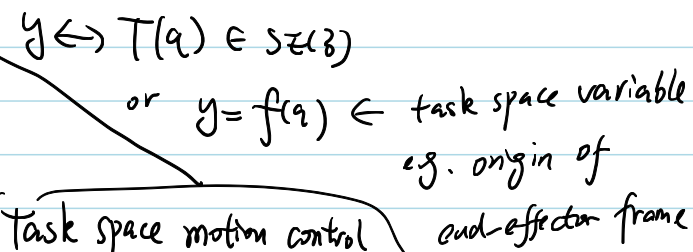 y ↔ T(q) ∈ SE(3)
or y = f(q) ← task space variable
e.g. origin of
end-effector frame
Task space motion control